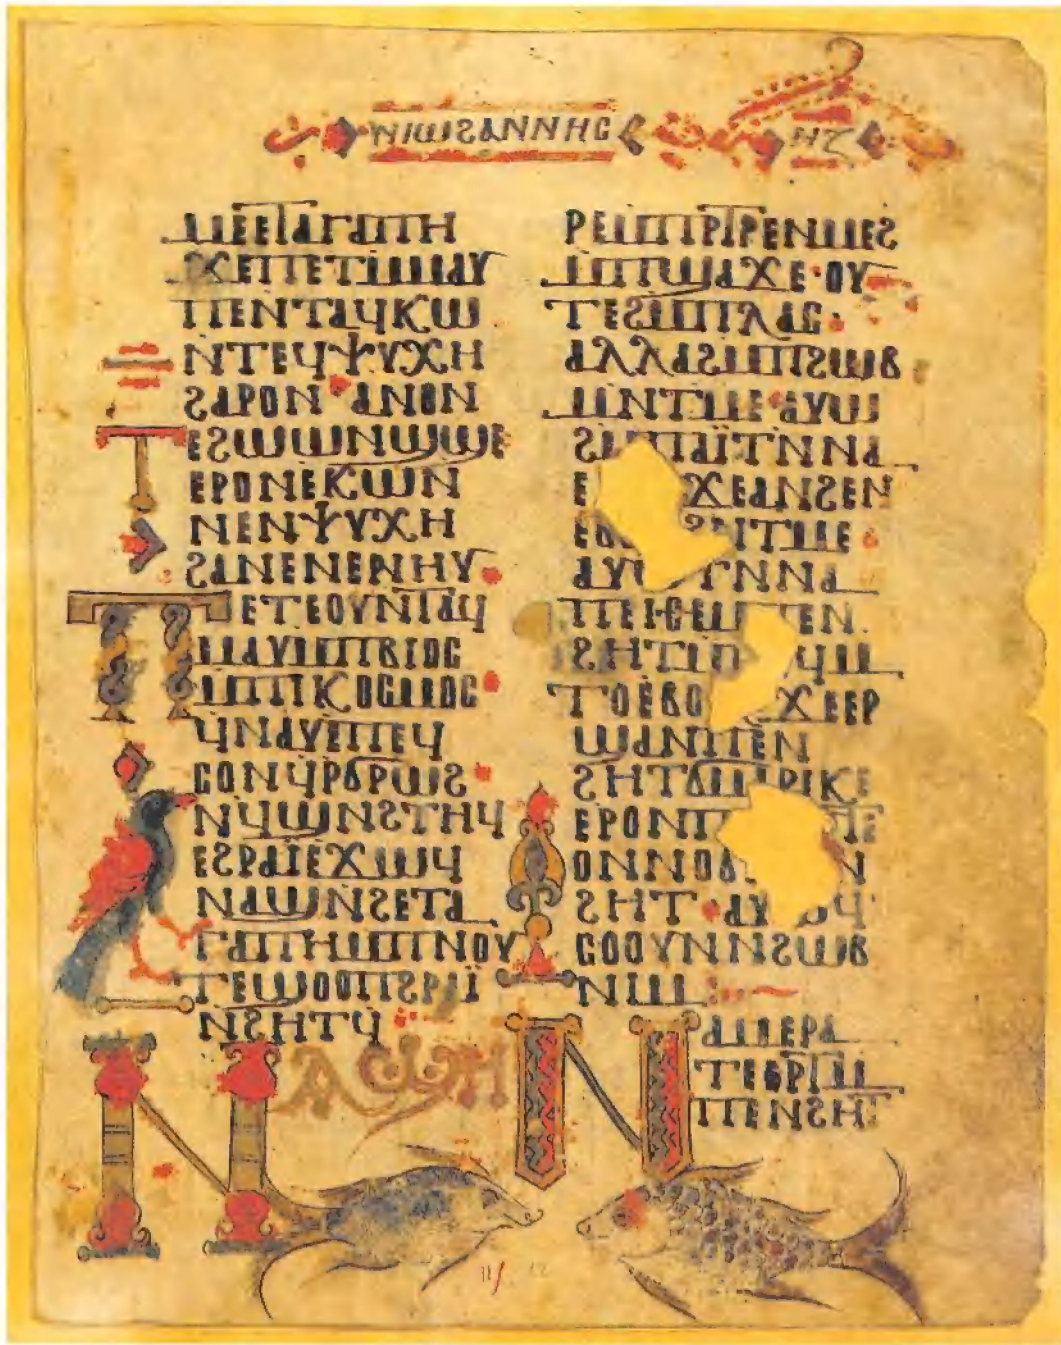 ⲛⲓⲱϩⲁⲛⲛⲏⲥ ⲛⲍ
ⲙⲉⲉⲧⲁⲅⲁⲡⲏ
ϫⲉⲡⲉⲧⲙⲙⲁⲩ
ⲡⲉⲛⲧⲁϥⲕⲱ
ⲛⲧⲉϥⲯⲩⲭⲏ
ϩⲁⲣⲟⲛ·ⲁⲛⲟⲛ
ⲧⲉϩⲱⲱⲛϣϣⲉ
ⲉⲣⲟⲛⲉⲕⲱⲛ
ⲛⲉⲛⲯⲩⲭⲏ
ϩⲁⲛⲉⲛⲉⲣⲏⲩ·
ⲡⲉⲧⲉⲟⲩⲛⲧⲁϥ
ⲙⲙⲁⲩⲙⲡⲃⲓⲟⲥ
ⲙⲡⲓⲕⲟⲥⲙⲟⲥ·
ϥⲛⲁⲩⲉⲡⲉϥ
ⲥⲟⲛϥⲣϭⲣⲱϩ·
ⲛϥϣⲛϩⲧⲏϥ
ⲉϩⲣⲁⲓ̈ⲉϫⲱϥ
ⲛⲁϣⲛϩⲉⲧⲁ
ⲅⲁⲡⲏⲙⲡⲛⲟⲩ
ⲧⲉϣⲟⲟⲡϩⲣⲁⲓ̈
ⲛϩⲏⲧϥ
ⲛⲁϣⲏ
ⲣⲉⲙⲡⲣⲧⲣⲉⲛⲙⲉϩ
ⲙⲡϣⲁϫⲉ·ⲟⲩ
ⲧⲉϩⲙⲡⲗⲁⲥ·
ⲁⲗⲗⲁϩⲙⲡϩⲱⲃ
ⲙⲛⲧⲙⲉ·ⲁⲩⲱ
ϩⲙⲡⲁⲓ̈ⲧⲛⲛⲁ
ⲉ ϫⲉⲁⲛϩⲉⲛ
ⲉⲃ ϩⲛⲧⲙⲉ
ⲁⲩⲱ ⲧⲛⲛⲁ
ⲡⲉⲓⲑⲉⲙ ⲉⲛ
ϩⲏⲧⲙⲡ ϥⲙ
ⲧⲟⲉⲃⲟ ϫⲉⲉⲣ
ϣⲁⲛⲡⲉⲛ
ϩⲏⲧϭⲛⲁⲣⲓⲕⲉ
ⲉⲣⲟⲛ ⲧⲉ
ⲟⲛⲛⲟϭ ⲛ
ϩⲏⲧ·ⲁⲩ ϥ
ⲥⲟⲟⲩⲛⲛϩⲱⲃ
ⲛⲓⲙ
ⲛⲁⲙⲉⲣⲁ
ⲧⲉⲉⲣⲧⲙ
ⲡⲉⲛϩⲏⲧ